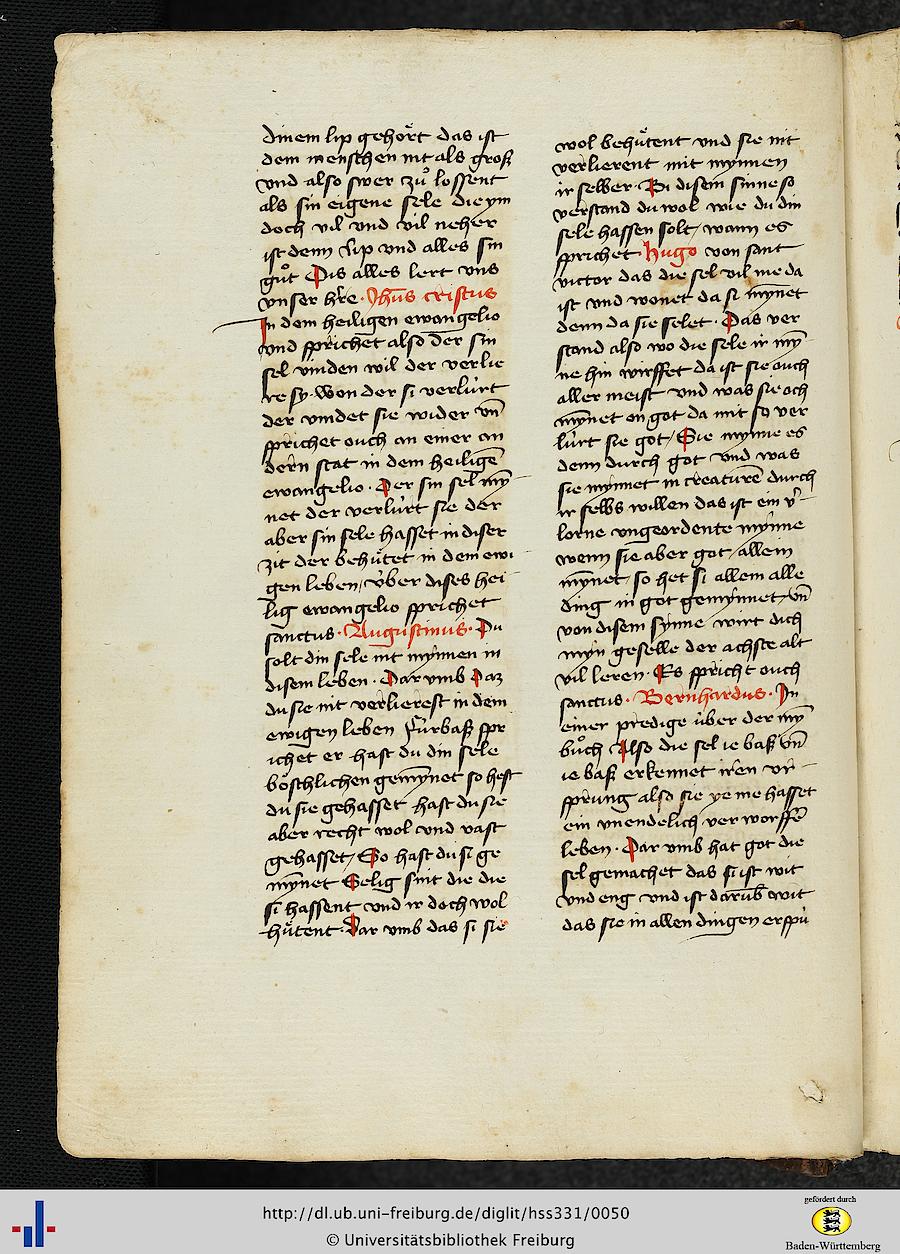 dinem lip gehoͤrt das ist
dem menschen nit als groß
vnd also swer zuͦ lossent
als sin eigene sele die ym
doch vil vnd vil neher
ist denn lip vnd alles sin
guͦt Dis alles lert vns
vnser hr̄e · Jhūs cristus
In dem heiligen ewangelio
vnd sprichet also der sin
sel vinden wil der verlie
re sy · Won der si verlürt
der vindet sie wider vn̄
sprichet ouch an einer an
dern stat in dem heiligē
ewangelio · Der sin sel mȳ
net der verlürt sie der
aber sin sele hasset in diser
zit der behuͤtet in dem ewi
gen leben / v̈ber dises hei
lig ewangelio sprichet
sanctus · Augustinus · Du
solt din sele nit mynnen in
disem leben · Dar vmb Daz
du sie nit verlierest in dem
ewigen leben fürbaß spr
ichet er hast du din sele
boͤschlichen gemȳnet so hest
du sie gehasset hast du sie
aber recht wol vnd vast
gehasset / So hast du si ge
mȳnet Selig sint die die
si hassent vnd ir doch wol
huͤtent · Dar vmb das si sie
wol behuͤtent vnd sie nit
verlierent mit mynnen
ir selber · Bi disem sinne so
verstand du wol wie du din
sele hassen solt / wann es
sprichet Hugo von sant
victor das die sel vil me da
ist vnd wonet da si mȳnet
denn da sie selet · Das ver
stand also wo die sele ir mȳ
ne hin wirffet da ist sie ouch
aller meist vnd was sie och
mȳnet on got da mit so ver
lürt sie got / Sie mynne es
denn durch got vnd was
sie mynnet in creaturē durch
ir selbs willen das ist ein v̾
lorne vngeordente mynne
wenn sie aber got / allein
mȳnet / so het si allem alle
ding in got gemynnet / vn̄
von disem synne wirt dich
myn geselle der achste alt
vil leren · Es spricht ouch
sanctus · Bernhardus · In
einer predige über der mȳ
buͦch Also die sel ie baß vn̄
ie baß erkennet iren vr
sprung also sie ye me hasset
ein vnendelich ver worffē
leben · Dar vmb hat got die
sel gemachet das si ist wit
vnd eng vnd ist darūb wit
das sie in allen dingen erspü
http://dl.ub.uni-freiburg.de/diglit/hss331/0050
© Universitätsbibliothek Freiburg
gefördert durch
Baden-Württemberg